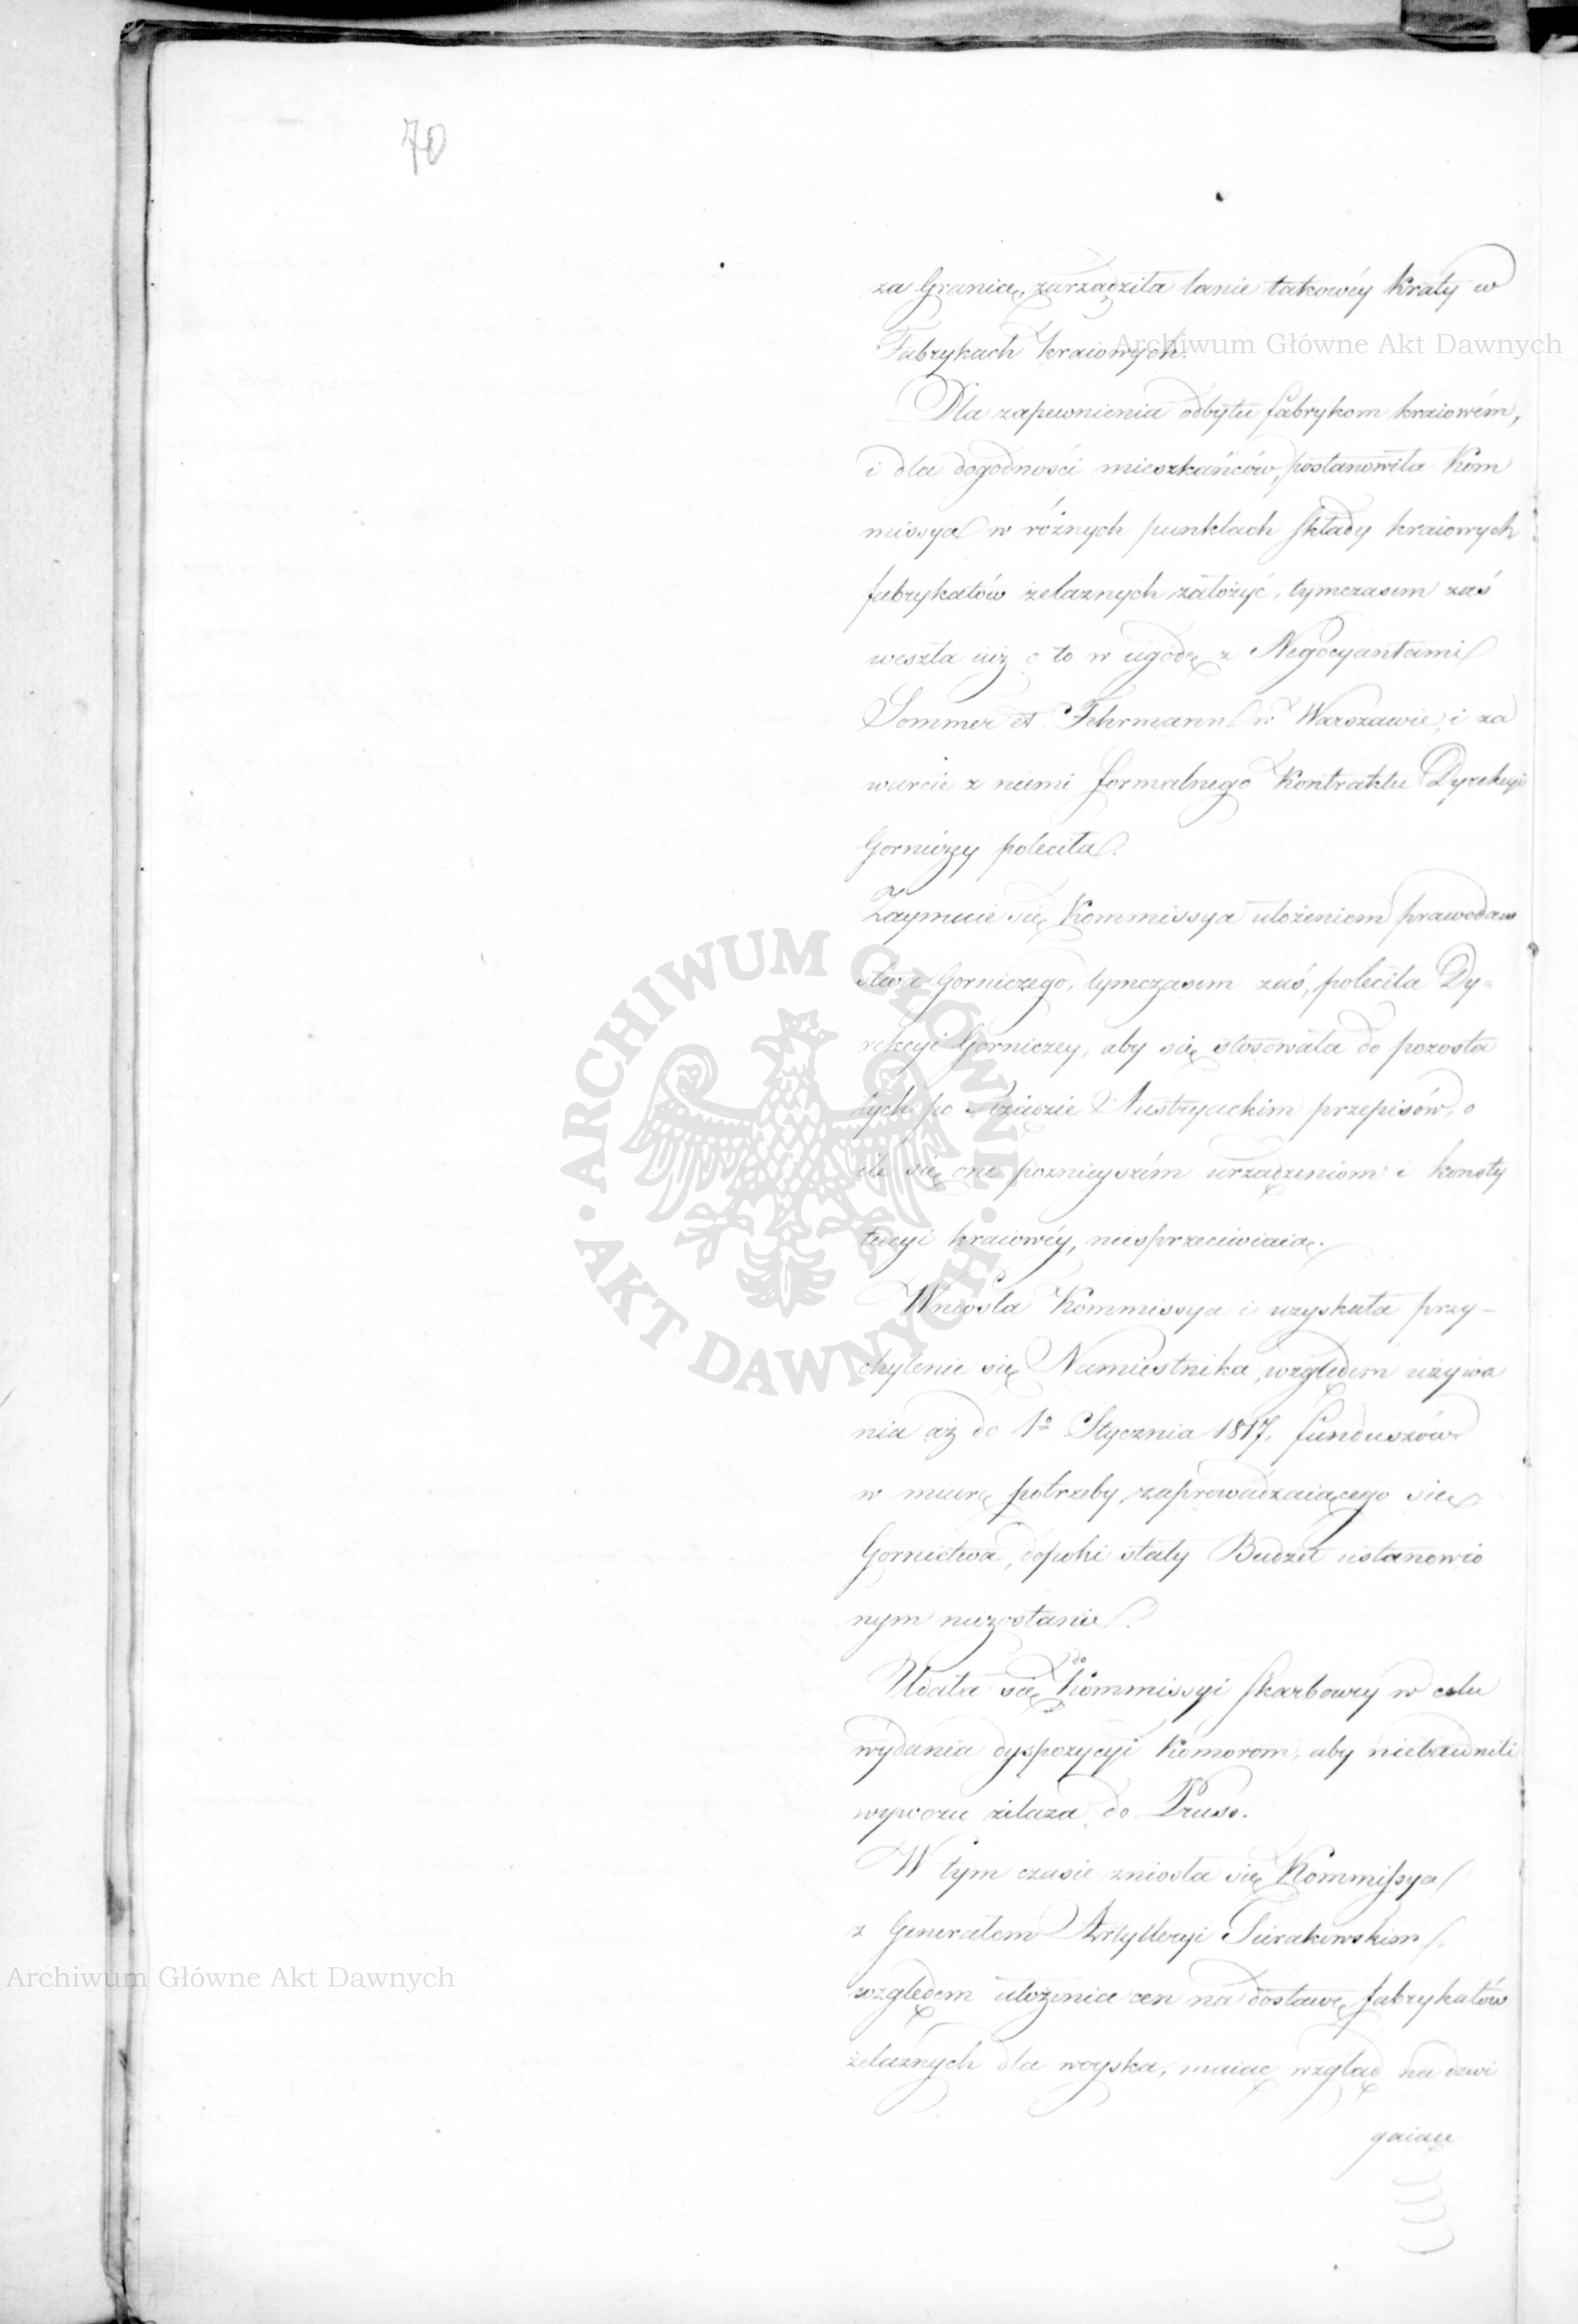 70
za Granicę, zarządziła lanie takowéy Kraty w
Fabrykach kraiowych.
Dla zapewnienia odbytu fabrykom kraiowém,
i dla dogodności mieszkańców, postanowiła Kom
missya w różnych punktach składy kraiowych
fabrykatów żelaznych założyć, tymczasem zaś
weszła iuż o to w ugodę z Negocyantami
Sommer et Fehrmann w Warszawie, i za
warcie z niemi formalnego Kontraktu Dyrekcyi
Gorniczey poleciła.
Zaymuie się Kommissya ułożeniem prawodaw
stwa Gorniczego, tymczasem zaś, poleciła Dy=
rekcyi Gorniczey, aby się stosowała do pozosta
łych po Rządzie Austryackim przepisów, o
ile się one poznieyszém urządzeniom i konsty
tucyi kraiowéy, niesprzeciwiaią.
Wniosła Kommissya i uzyskała przy-
chylenie się Namiestnika, względem używa
nia aż do 1º Stycznia 1817, funduszów
w miarę potrzeby, zaprowadzaiącego się
Gornictwa, dopoki stały Budżet ustanowio
nym niezostanie.
Udała się do Kommissyi Skarbowey w celu
wydania dyspozycyi Komorom, aby niebawnili
wywozu żelaza do Pruss.
W tym czasie zniosła się Kommissya
z Generałem Artylleryi Sierakowskim,
względem ułożenia cen na dostawę fabrykatów
żelaznych dla woyska, maiąc wzgląd na dzwi
gaiące
Archiwum Główne Akt Dawnych
ARCHIWUM GŁÓWNE · AKT DAWNYCH ·
Archiwum Główne Akt Dawnych